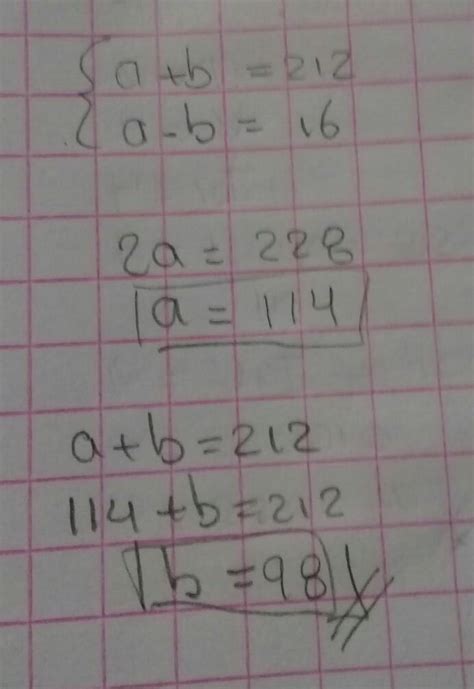 a+b = 212
a-b = 16
2a = 228
a = 114
a+b=212
114+b=212
b=98